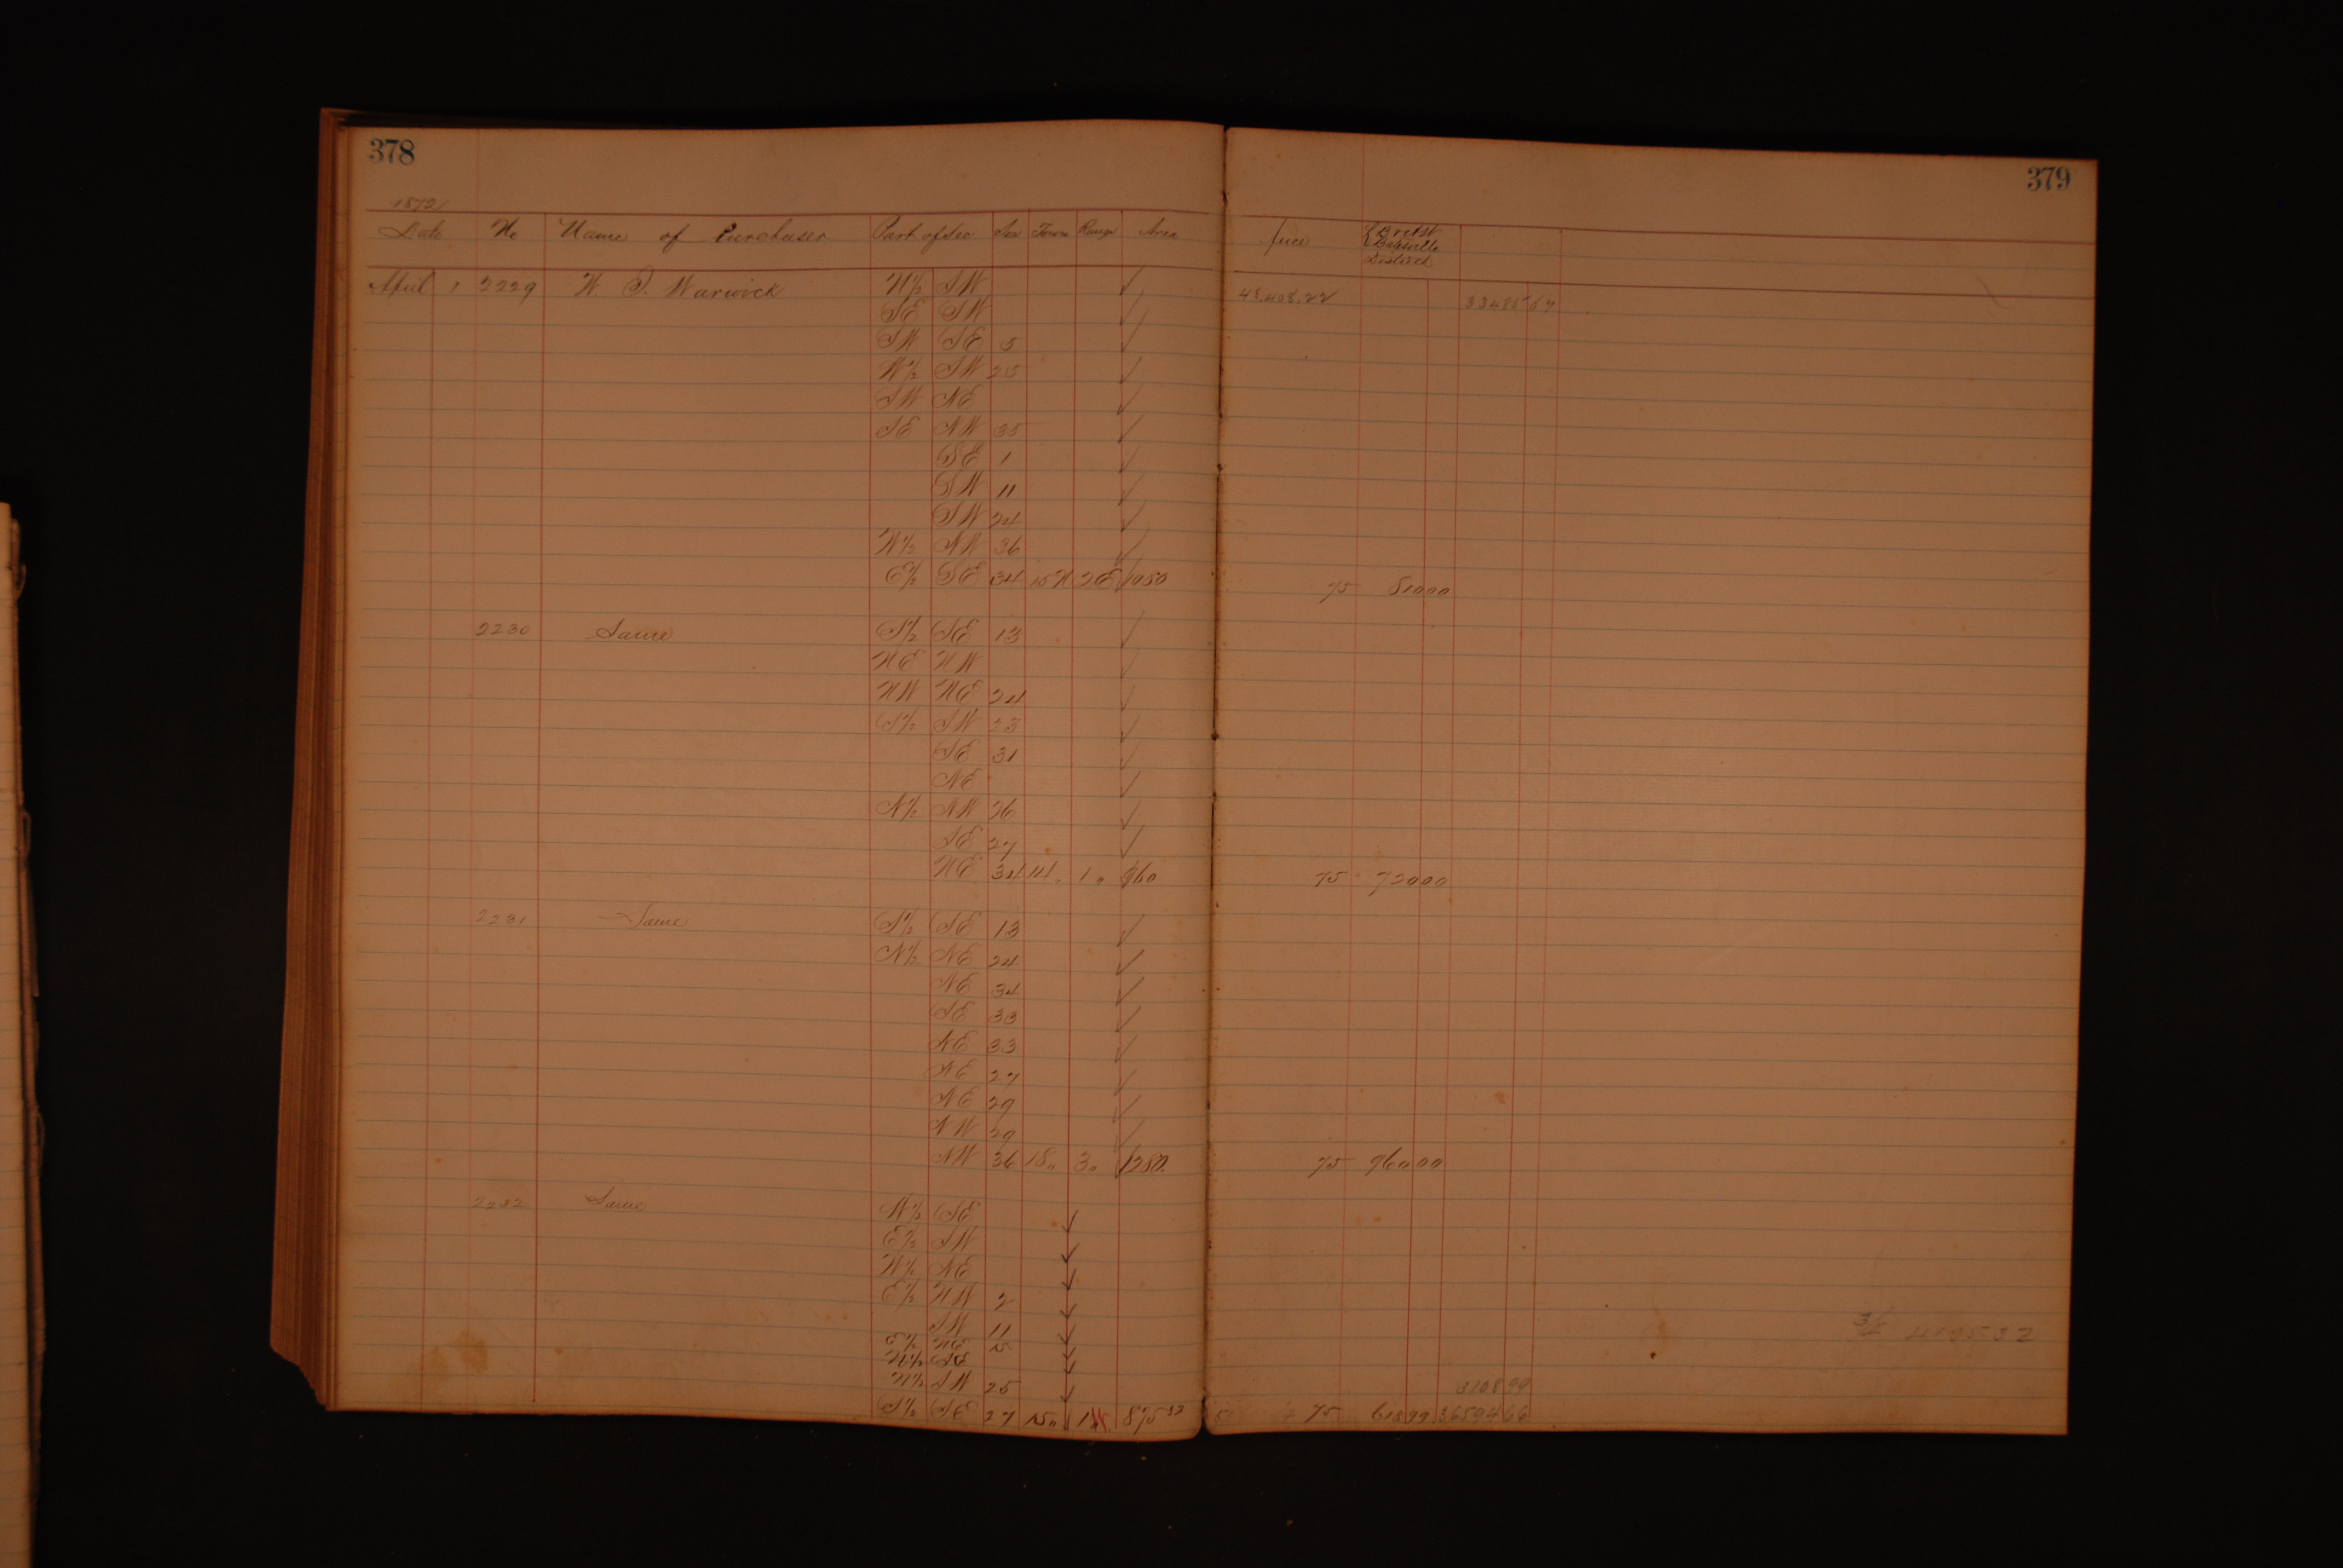 378
379
1872
Date No Name of Purchaser Part of Sec Sec Town Range Area Price Brot St Batesville District
April 1 2229 W. P. Warwick N½ SW 48,408.22 33485 67
SE SW
SW SE 5
W½ SW 25
SW NE
SE NW 35
SE 1
SW 11
SW 24
W½ NW 36
E½ SE 34 15N 2E 1080 75 810 00
2230 Same S½ SE 13
NE NW
NW NE 24
S½ SW 23
SE 31
NE
N½ NW 26
SE 27
NE 34 14 " 1 " 960 75 720 00
2231 Same S½ SE 13
N½ NE 24
NE 34
SE 33
NE 33
NE 27
NE 29
NW 29
NW 36 18 " 3 " 1280 75 960 00
2232 Same W½ SE
E½ SW
W½ NE
E½ NW 2
SW 11
E½ NE 15
W½ SE
N½ SW 25
3108 99
S½ SE 27 15 " 1 875 32 75 618 99 36594 66